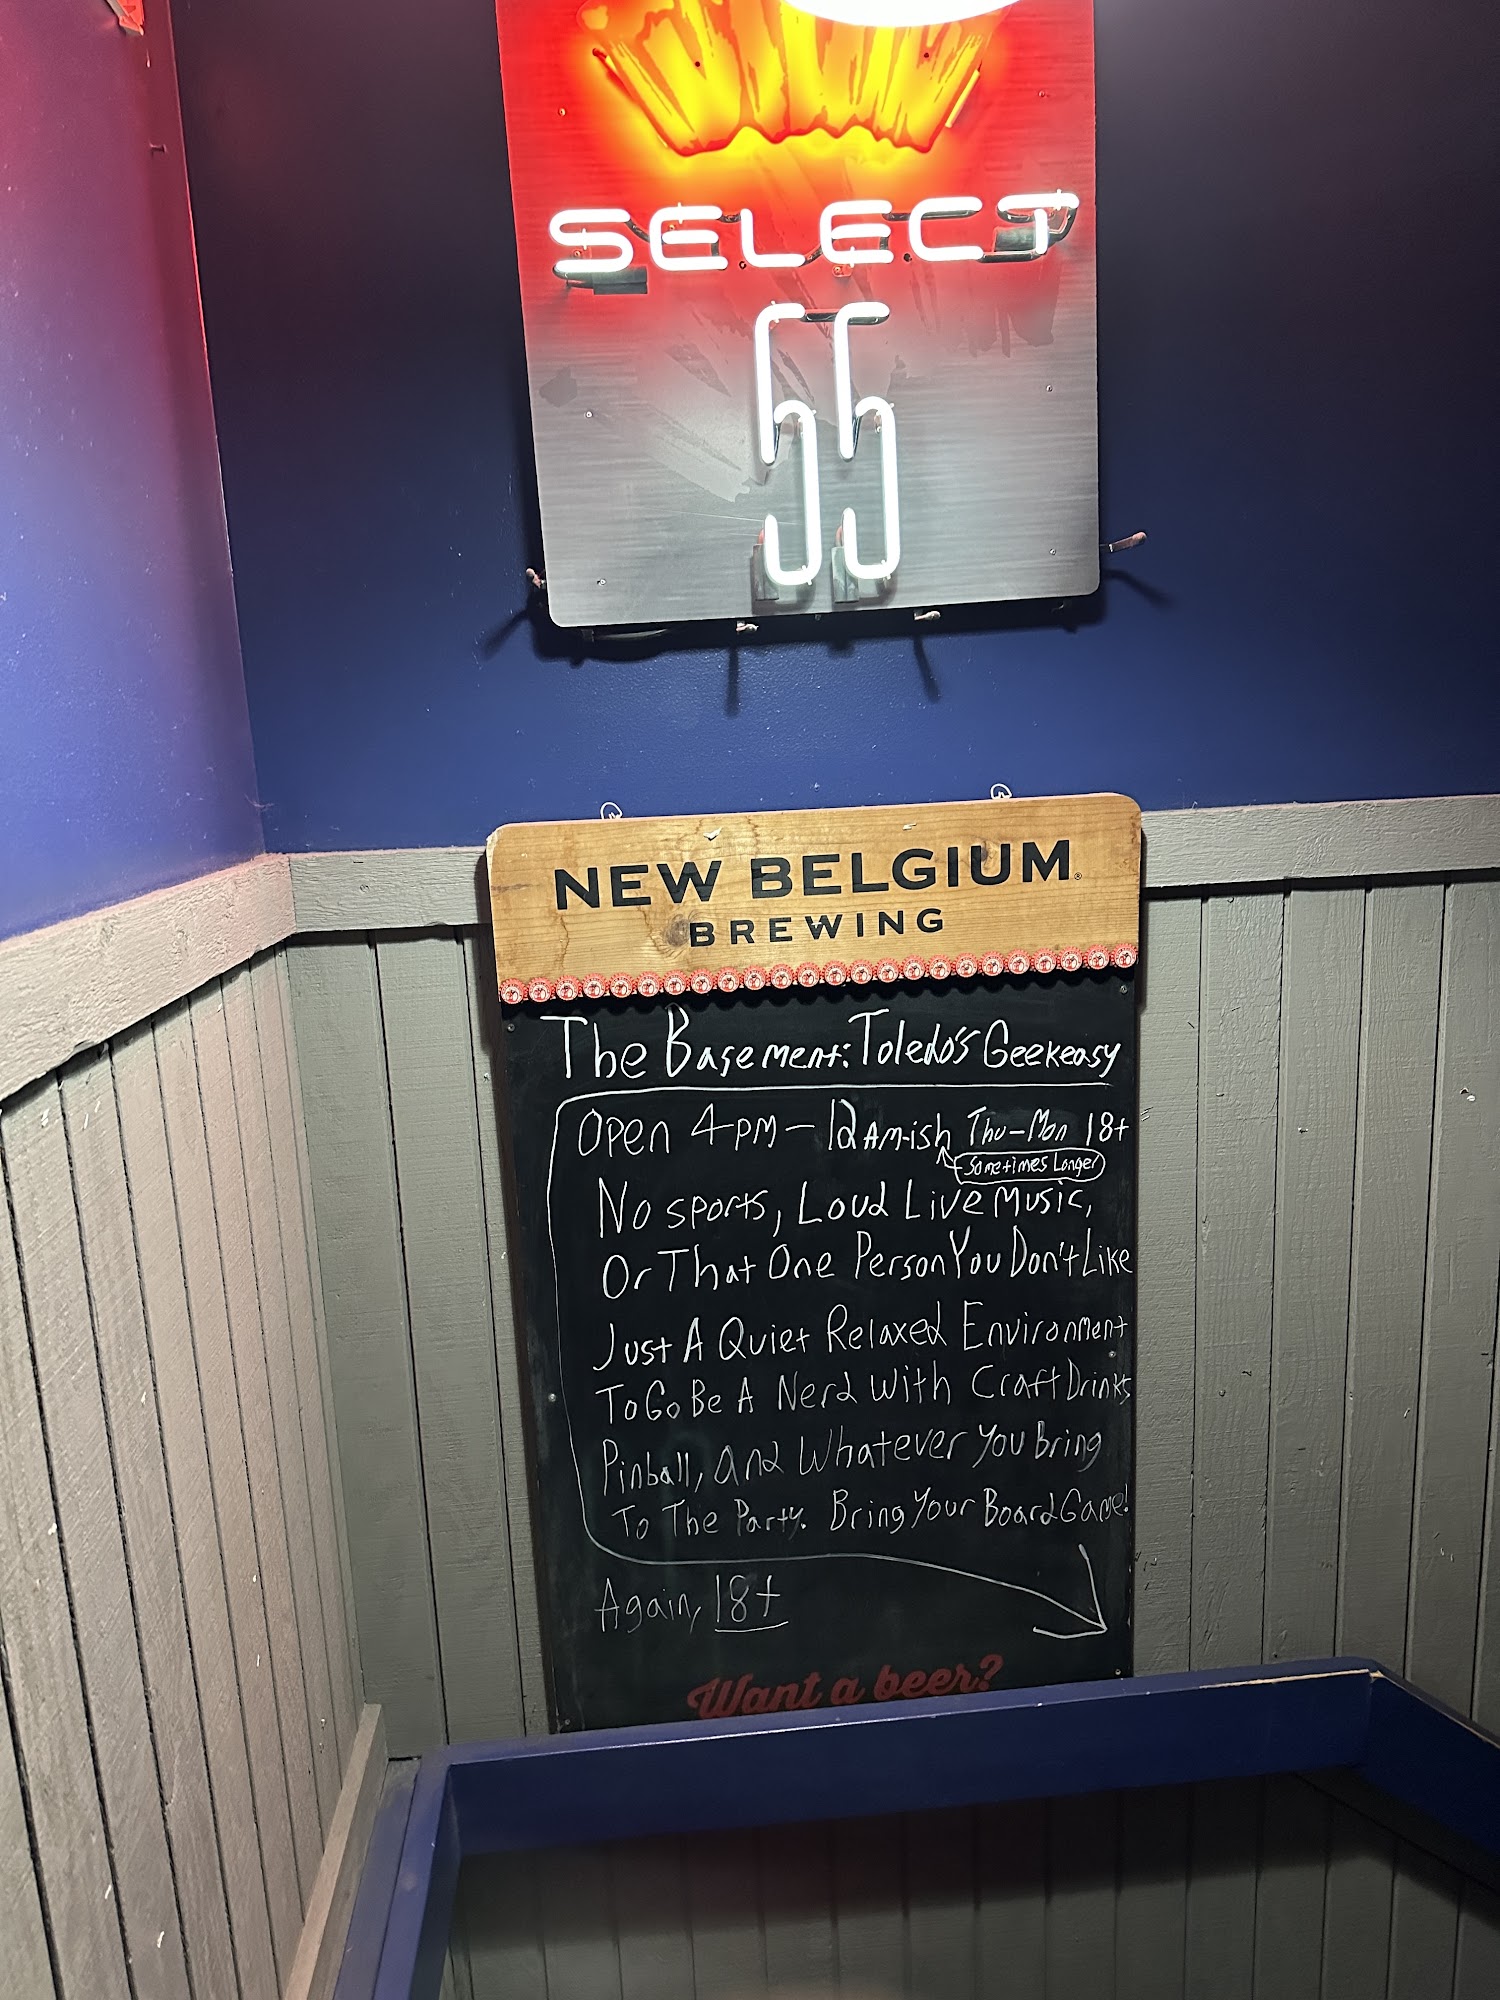 SELECT
55
NEW BELGIUM®
BREWING
The Basement: Toledo's Geekeasy
Open 4pm - 12Am-ish Thu-Mon 18+
Sometimes Longer
No sports, Loud Live Music,
Or That One Person You Don't Like
Just A Quiet Relaxed Environment
To Go Be A Nerd With Craft Drinks
Pinball, and Whatever You Bring
To The Party. Bring Your Board Game!
Again, 18+
Want a beer?